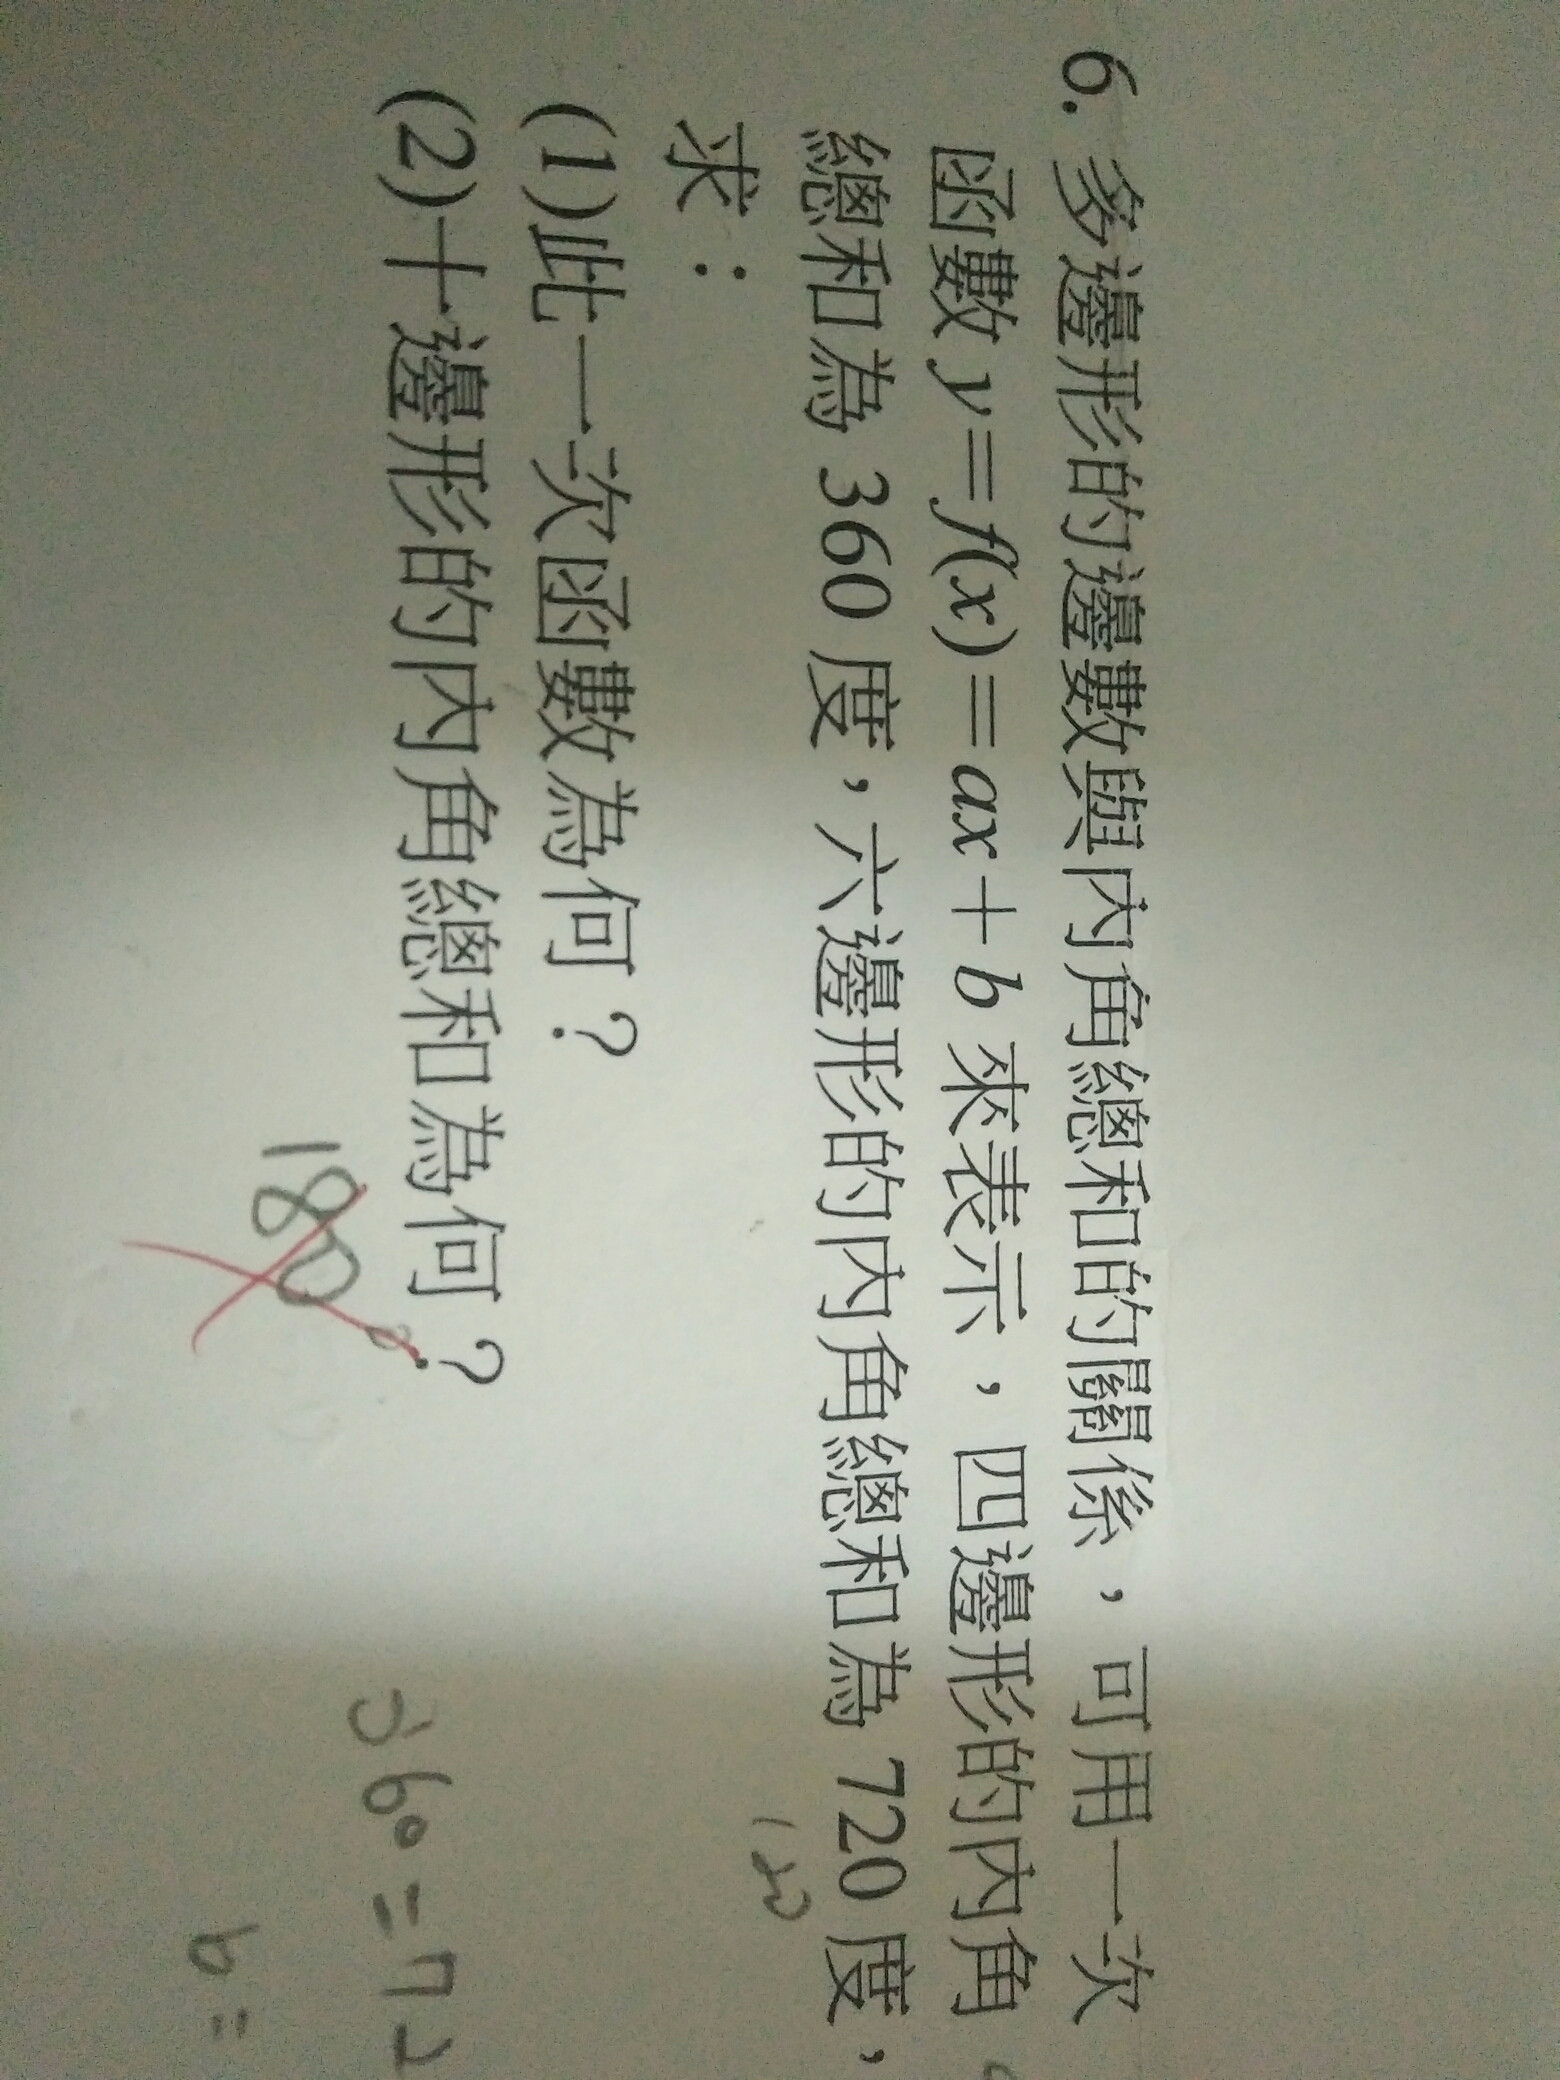 6. 多邊形的邊數與內角總和的關係，可用一次
函數 y=f(x)=ax+b 來表示，四邊形的內角
總和為 360 度，六邊形的內角總和為 720 度，
求：
(1)此一次函數為何？
(2)十邊形的內角總和為何？
180°
360=42
b=